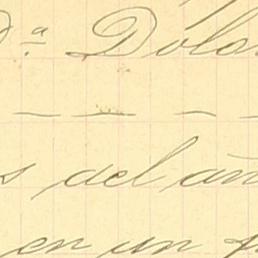 D.ª Dolo
— — — —
s del añ
en un p